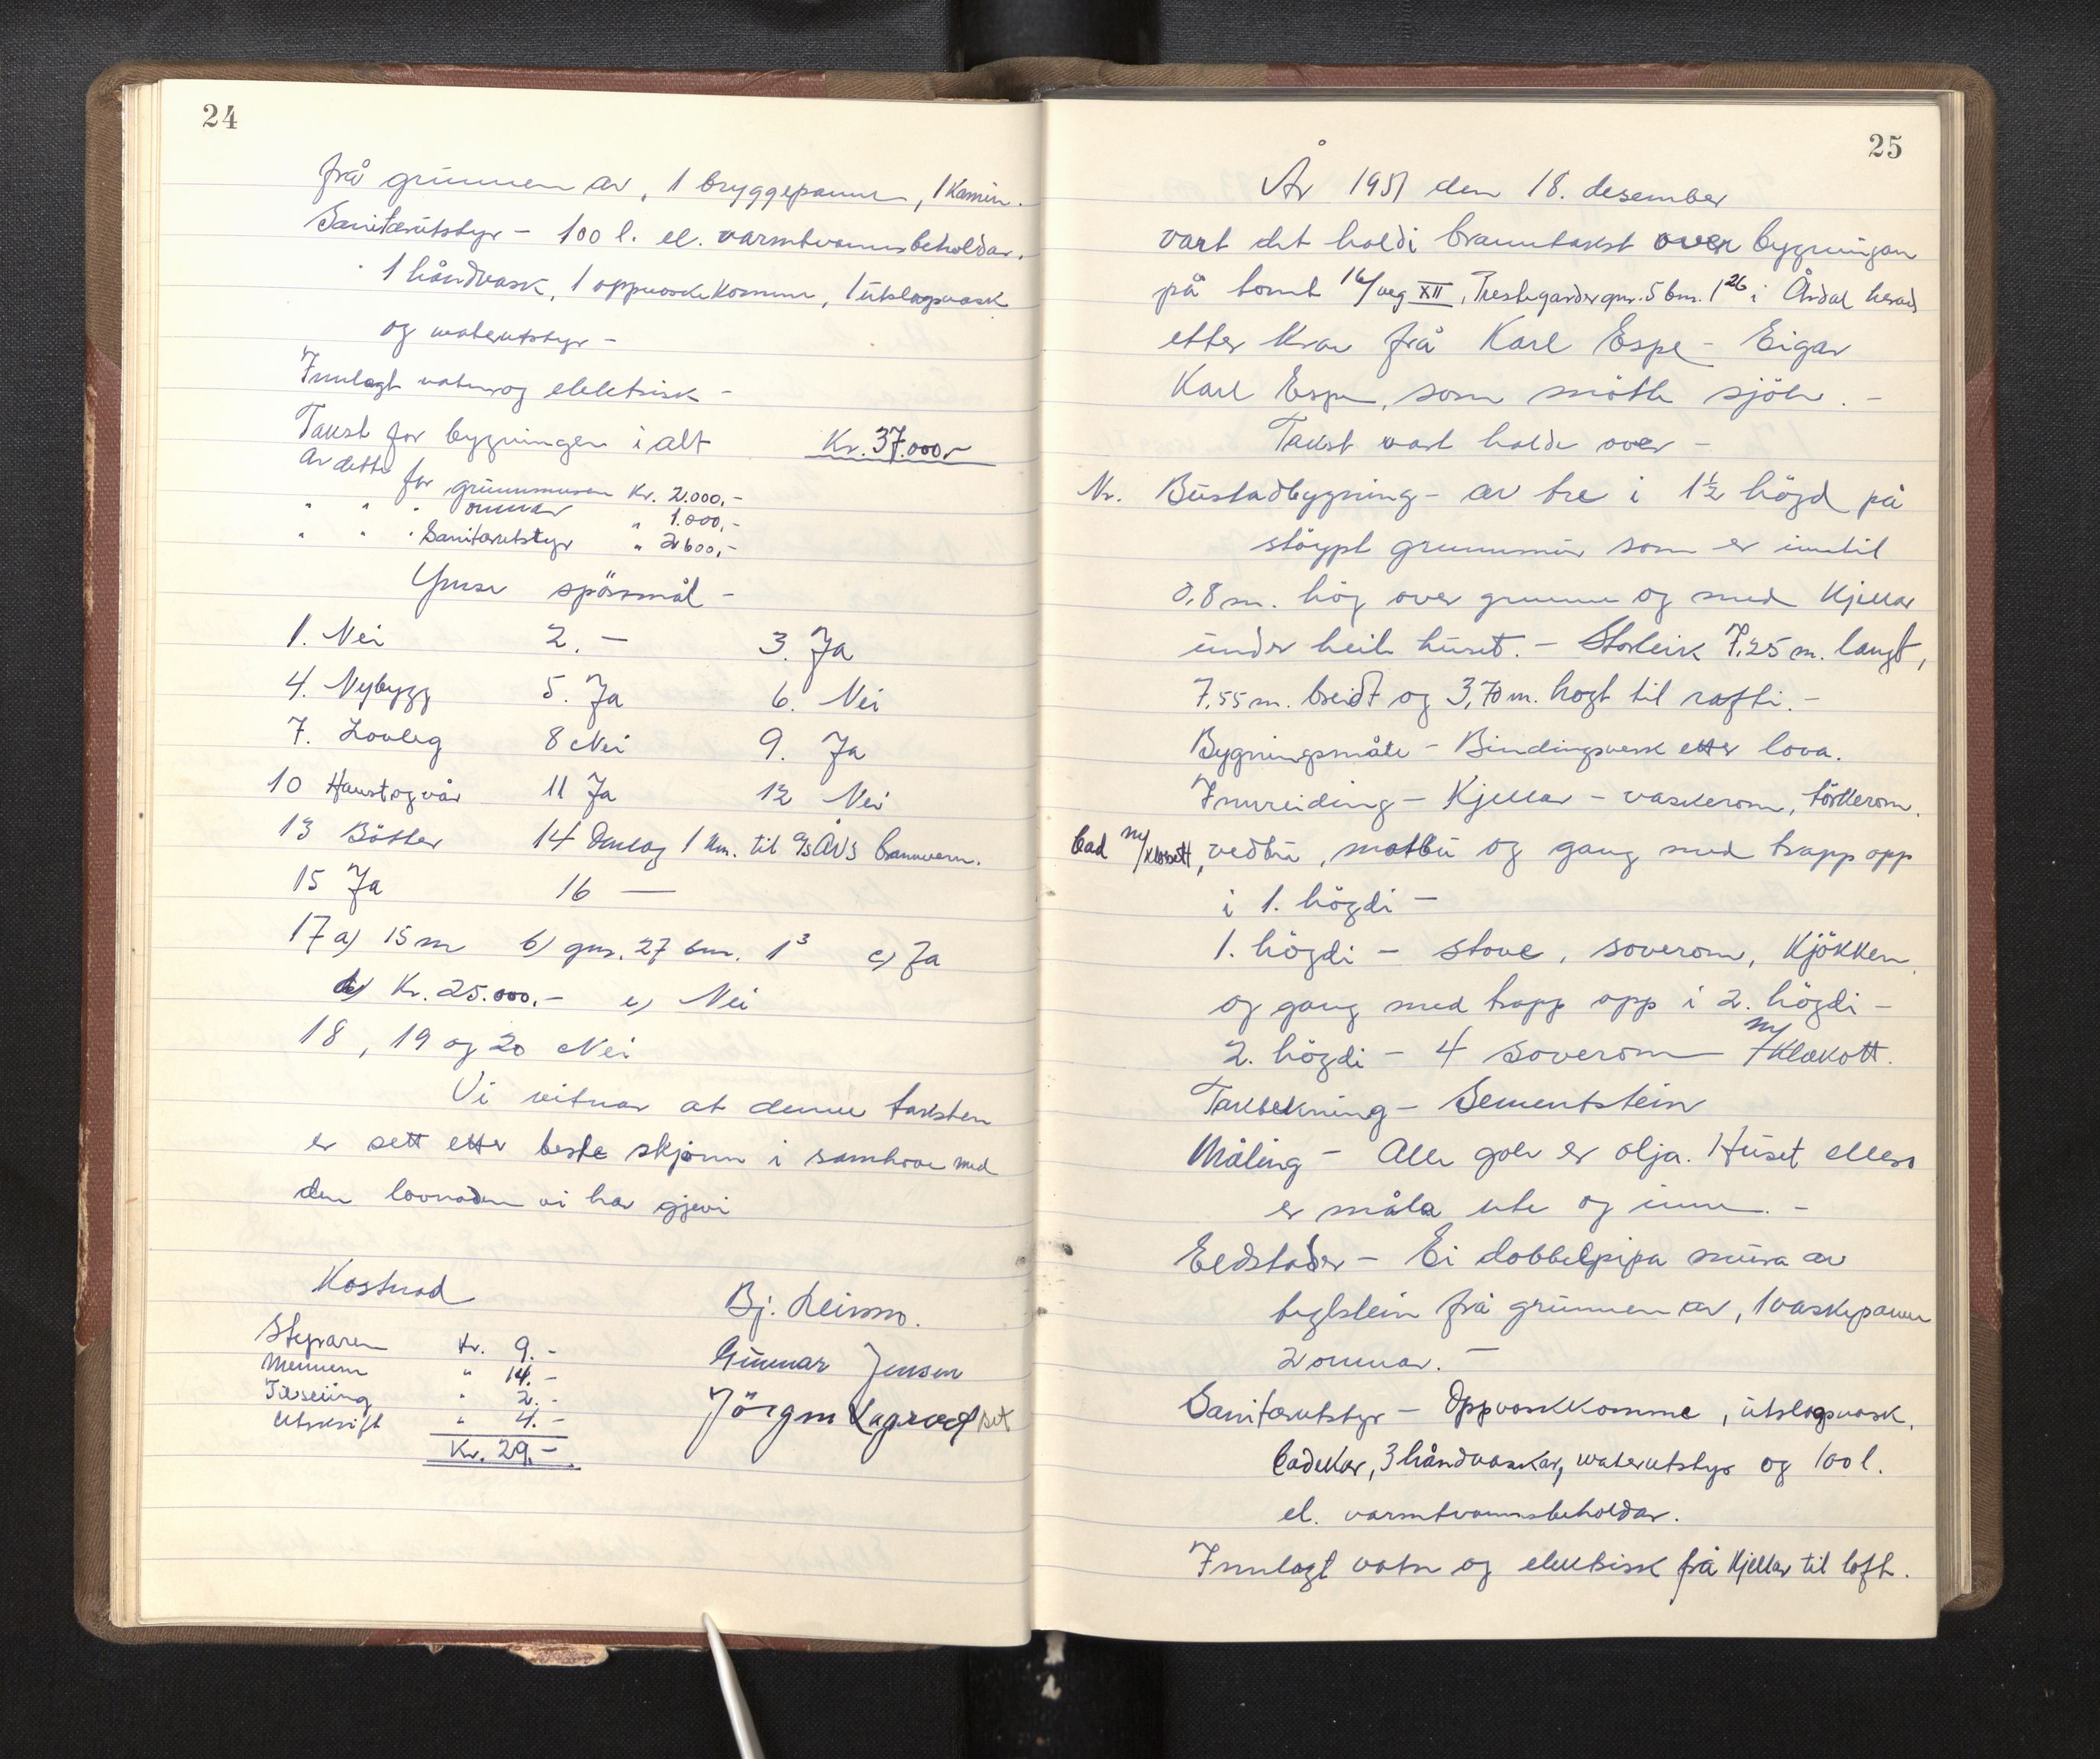 24
frå grunnen av, 1 bryggepanne, 1 kamin.
Sanitærutstyr - 100 l. el. varmtvannsbeholdar.
1 håndvask, 1 oppvaskkomme, 1 utslagsvask
og waterutstyr -
Innlagt vatn og elektrisk -
Takst for bygningen i alt Kr. 37.000,-
Av dette for grunnmuren Kr. 2.000,-
" " " omnar " 1.000,-
" " " Sanitærutstyr " 2600,-
Ymse spörsmål -
1. Nei 2. - 3. Ja
4. Nybygg 5. Ja 6. Nei
7. Lovleg 8 Nei 9. Ja
10 Haust og vår 11 Ja 12 Nei
13 Bötter 14 1 km. til a/s ÅVs brannvern.
15 Ja 16 —
17 a) 15 m b) gnr. 27 bnr. 1³ c) Ja
d) Kr. 25.000.- e) Nei
18, 19 og 20 Nei
Vi vitnar at denne taksten
er sett etter beste skjønn i samhøve med
den lovnaden vi har gjevi
Kostnad
Bj. Leirmo.
Styraren kr. 9.-
Gunnar Jensen
Mennene " 14.-
Tilseiing " 2.-
Jörgen
Utskrift " 4.-
Kr. 29.-
25
År 1951 den 18. desember
vart det haldi branntakst over bygningan
på tomt 16/veg XII, gnr. 5 bnr. 1²⁶ i Årdal herad
etter krav frå Karl Espe - Eigar
Karl Espe, som mötte sjölv. -
Takst vart halde over -
Nr. Bustadbygning - av tre i 1½ högd på
stöypt grunnmur som er inntil
0,8 m. hög over grunnen og med kjellar
under heile huset. - Storleik 7,25 m. langt,
7,55 m. breidt og 3,70 m. høgt til rafti. -
Bygningsmåte - Bindingsverk etter lova.
Innreiding - Kjellar - vaskerom, törkerom,
bad m/klosett, vedbu, matbu og gang med trapp opp
i 1. högdi -
1. högdi - stove, soverom, kjökken
og gang med trapp opp i 2. högdi -
2. högdi - 4 soverom m/klekott.
Taktekning - Sementstein
Måling - Alle golv er olja. Huset ellers
er måla ute og inne. -
Eldstader - Ei dobbelpipa mura av
teglstein frå grunnen av, 1 vaskepanne
2 omnar. -
Sanitærutstyr - Oppvaskkomme, utslagsvask,
badekar, 3 håndvaskar, waterutstyr og 100 l.
el. varmtvannsbeholdar.
Innlagt vatn og elektrisk frå kjellar til loft.